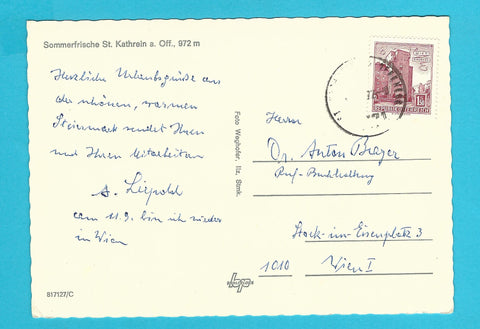 Sommerfrische St. Kathrein a. Off., 972 m
Herzliche Urlaubsgrüße aus
der schönen, warmen
Steiermark sendet Ihnen
und Ihren Mitarbeitern
A. Liepold
am 11.9. bin ich wieder
in Wien
817127/C
Foto Weghofer, Ilz, Stmk.
REPUBLIK ÖSTERREICH
Herrn
Dr. Anton Berger
Ruf-Buchhaltung
Stock-im-Eisenplatz 3
1010 Wien I